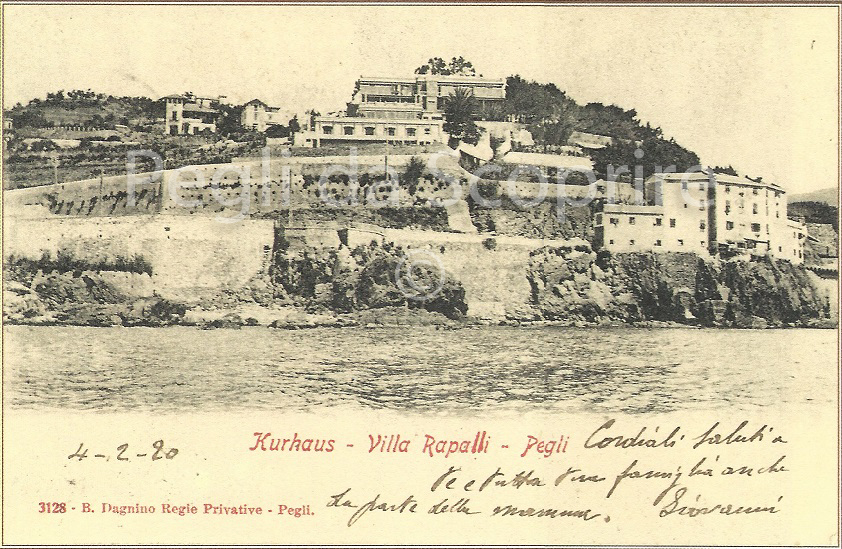 Pegli da Scoprire ©
Kurhaus - Villa Rapalli - Pegli
Cordiali saluti a
te e tutta tua famiglia anche
da parte della mamma. Giovanni
4-2-20
3128 - B. Dagnino Regie Privative - Pegli.